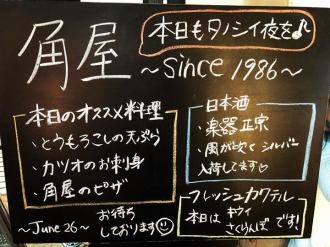 角屋
本日もタノシイ夜を♪
~Since 1986~
本日のオススメ料理
・とうもろこしの天ぷら
・カツオのお刺身
・角屋のピザ
日本酒
・楽器正宗
・風が吹く シルバー
入荷してます♡
フレッシュカクテル
本日は キウイ
さくらんぼ です!
~June 26~
お待ち
しております☺